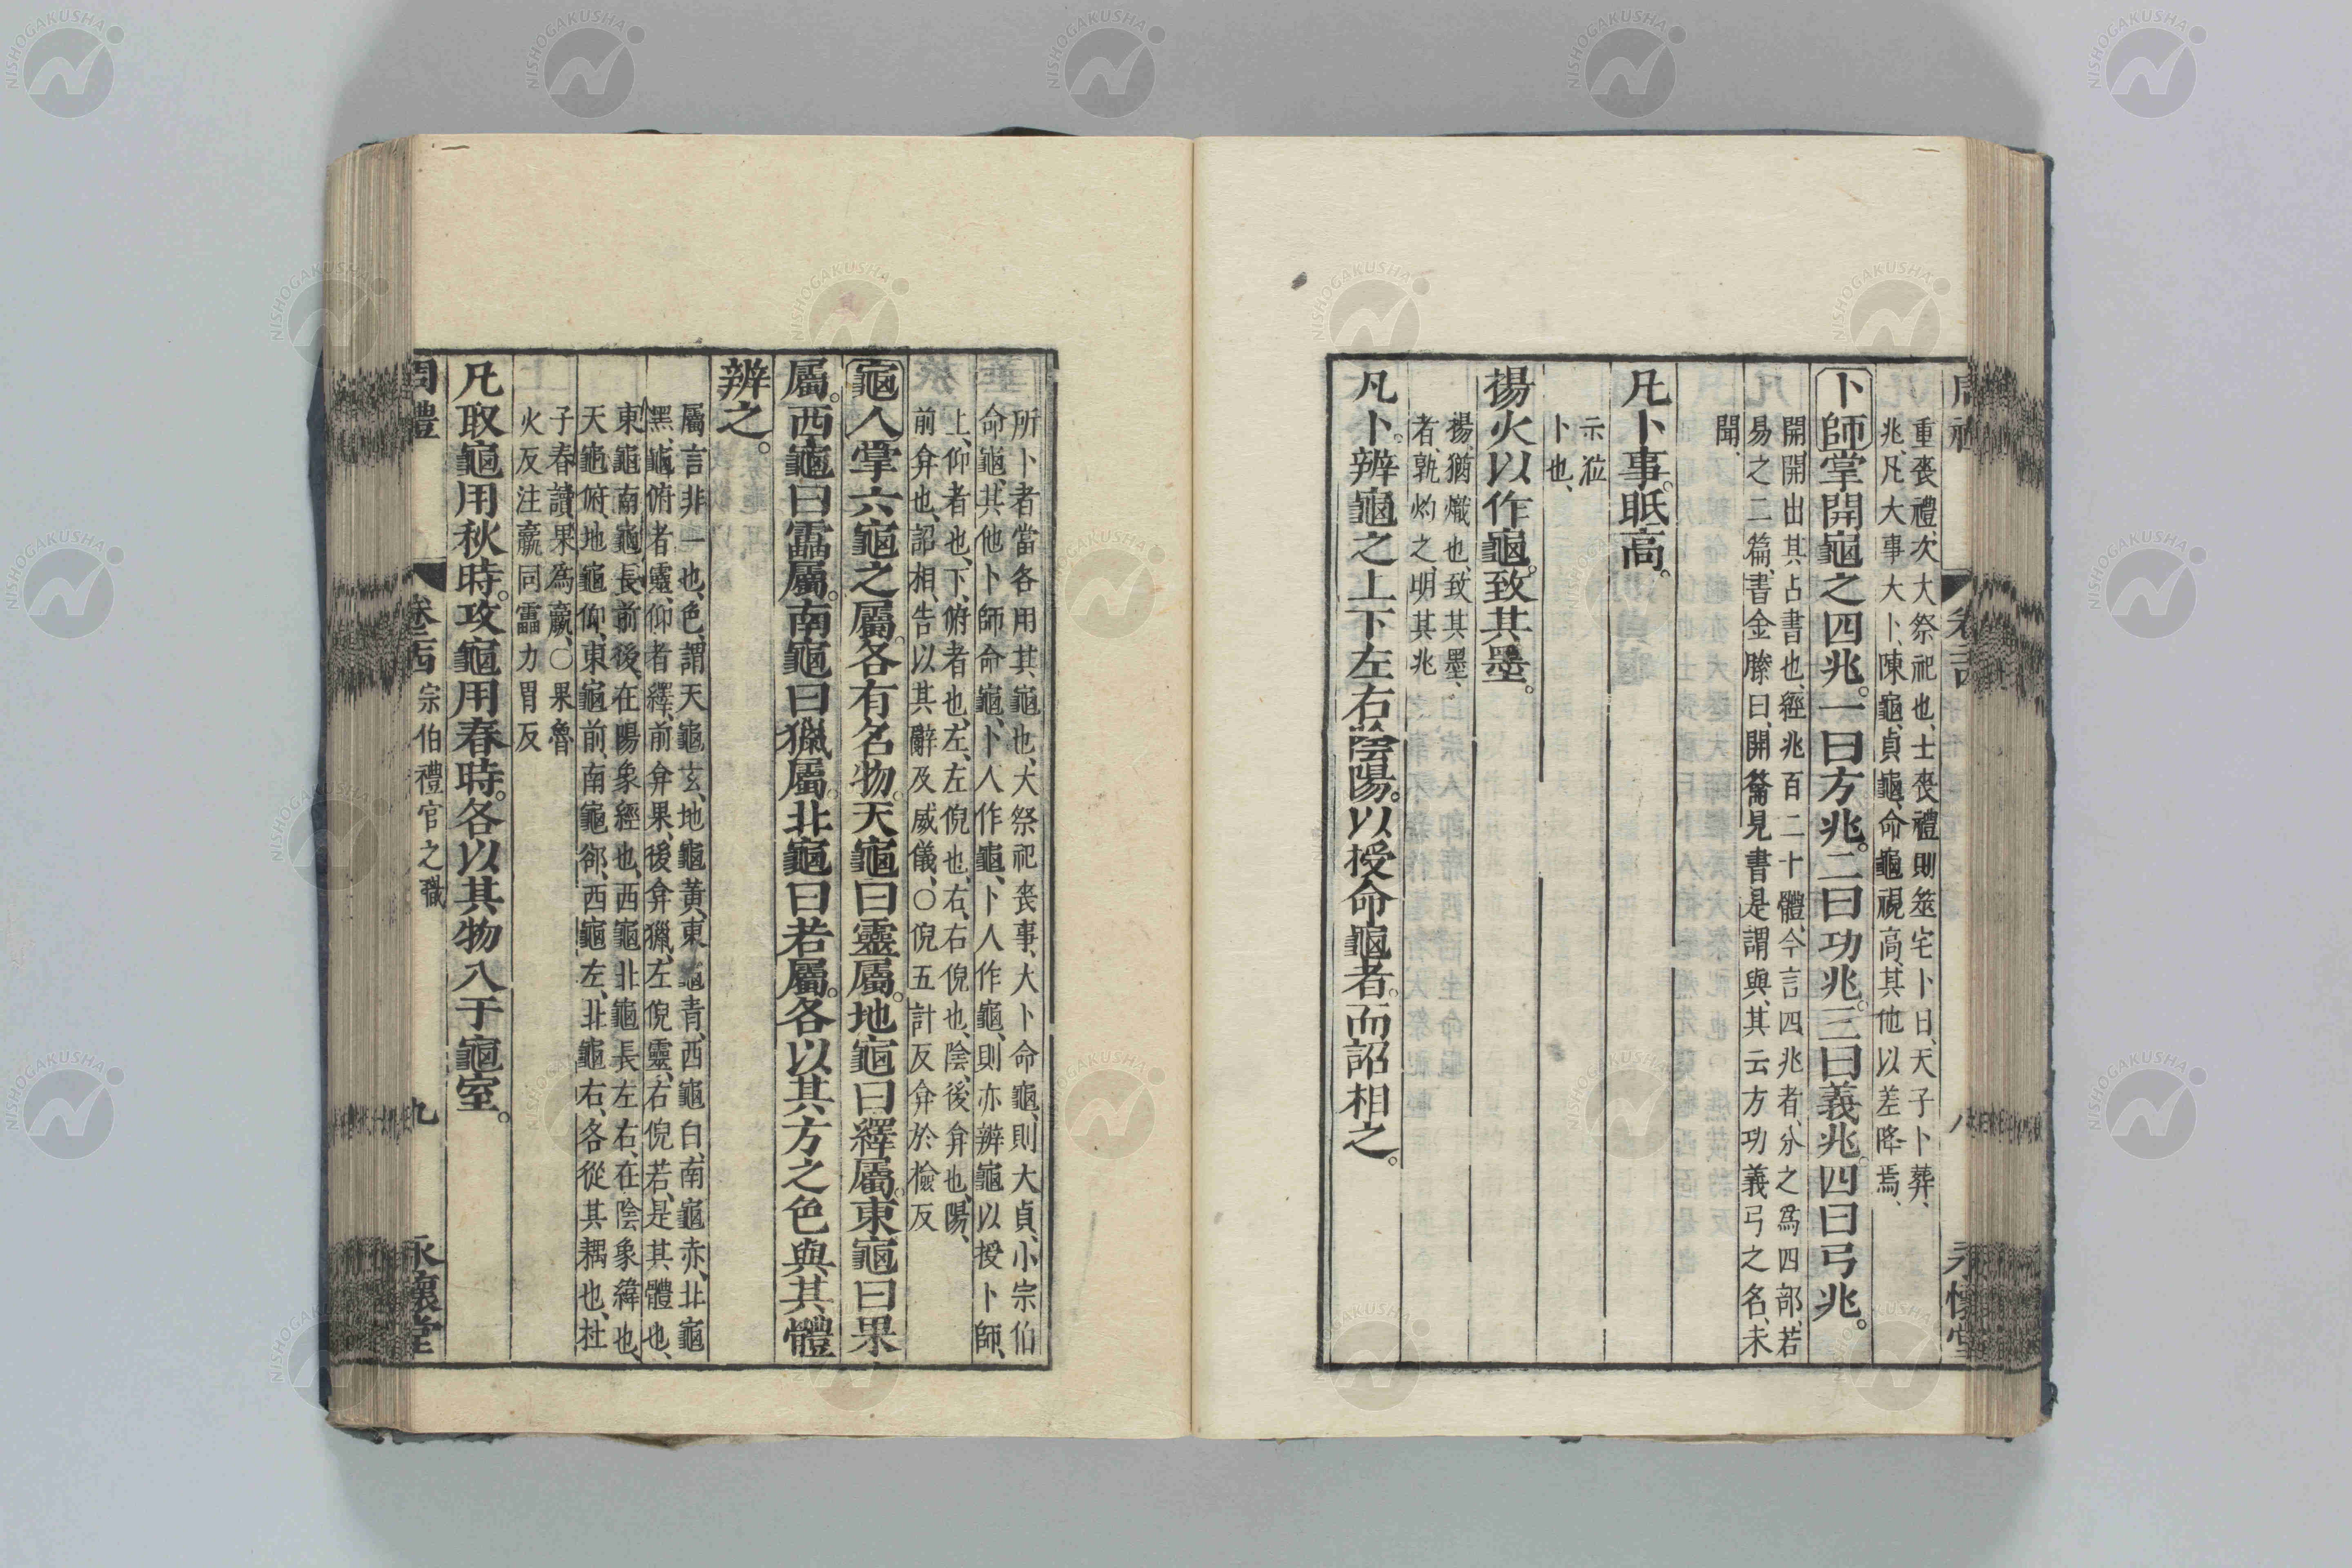 重喪禮、次大祭祀也、士喪禮則筮宅卜日、天子卜葬、
兆、凡大事大卜、陳龜、貞龜、命龜視高、其他以差降焉、
卜師掌開龜之四兆。一曰方兆。二曰功兆。三曰義兆。四曰弓兆。
開開出其占書也、經兆百二十體、今言四兆者、分之爲四部、若
易之二篇、書金縢曰、開籥見書是謂與、其云方功義弓之名、未
聞、
凡卜事。眡高。
示涖
卜也、
揚火以作龜。致其墨。
揚、猶熾也、致其墨、
者、孰灼之、明其兆
凡卜。辨龜之上下左右陰陽。以授命龜者。而詔相之。
周禮 卷
八
永懷堂
所卜者當各用其龜也、大祭祀喪事、大卜命龜、則大貞、小宗伯
命龜、其他卜師命龜、卜人作龜、卜人作龜、則亦辨龜以授卜師、
上、仰者也、下、俯者也、左、左倪也、右、右倪也、陰、後弇也、陽、
前弇也、詔相、告以其辭及威儀、○倪五計反弇於檢反
龜人掌六龜之屬。各有名物。天龜曰靈屬。地龜曰繹屬。東龜曰果
屬。西龜曰靁屬。南龜曰獵屬。北龜曰若屬。各以其方之色與其體
辨之。
屬言非一也、色、謂天龜玄、地龜黃、東龜青、西龜白、南龜赤、北龜
黑、龜俯者靈、仰者繹、前弇果、後弇獵、左倪靈、右倪若、是其體也、
東龜南龜長前後、在陽象經也、西龜北龜長左右、在陰象緯也、
天龜俯、地龜仰、東龜前、南龜卻、西龜左、北龜右、各從其耦也、杜
子春讀果爲臝、○果魯
火反注臝同靁力胃反
凡取龜用秋時。攻龜用春時。各以其物入于龜室。
周禮 卷 宗伯禮官之職
九
永懷堂